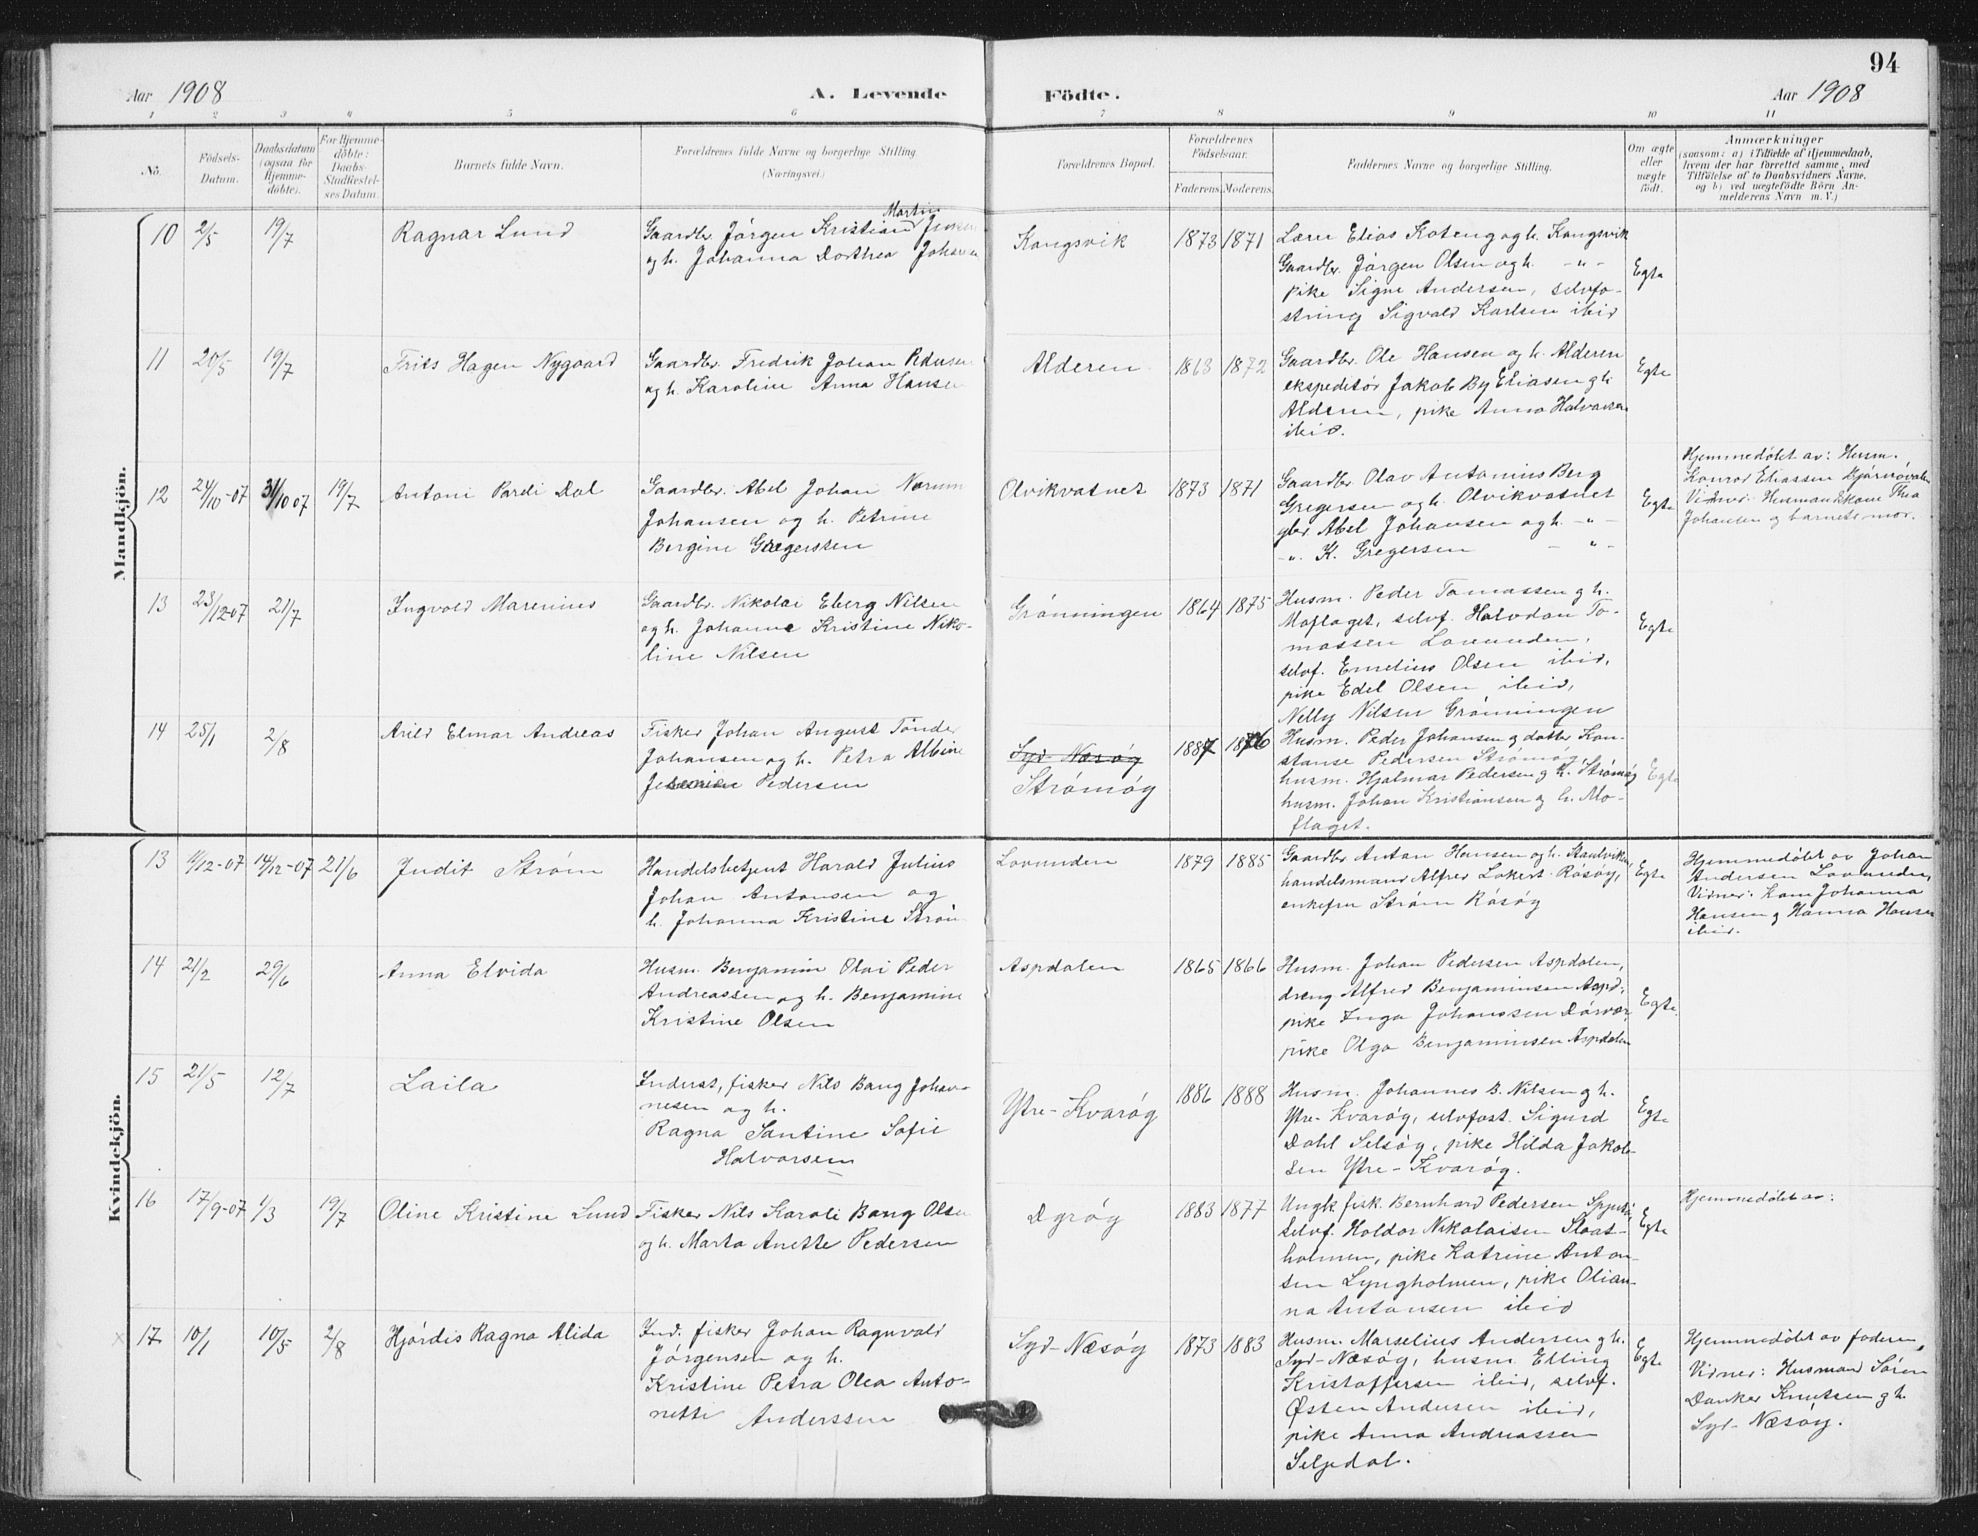 94
Aar 1908
A. Levende
Födte.
Aar 1908
1 2 3 4 5 6 7 8 9 10 11
No.
Födsels-
Datum.
Daabsdatum
(ogsaa för
Hjemme-
döbte).
For Hjemme-
döbte:
Daabs-
Stadfæstel-
ses Datum
Barnets fulde Navn.
Forældrenes fulde Navne og borgerlige Stilling.
(Næringsvei.)
Forældrenes Bopæl.
Forældrenes
Födselsaar.
Faderens. Moderens.
Faddernes Navne og borgerlige Stilling.
Om ægte
eller
uægte
födt.
Anmærkninger
(saasom: a) i Tilfælde af Hjemmedaab,
hvem der har forrettet samme, med
Tilföielse af to Daabsvidners Navne,
og b) ved uægtefödte Börn An-
melderens Navn m. V.)
Mandkjön.
10 2/5 19/7
Ragnar Lund
Martin
Gaardbr. Jørgen Kristian Jensen
og h. Johanna Dorthea
Kongsvik
1873 1871
Lærer Elias Koteng og h. Kongsvik
Gaardbr. Jørgen Olsen og h. -"-
pike Signe Andersen, selvfo-
string Sigvald Karlsen ibid
Egte
11 20/5 19/7
Frits Hagen Nygaard
Gaardbr. Fredrik Johan Pedersen
og h. Karoline Anna Hansen
Alderen
1863 1872
Gaardbr. Ole Hansen og h. Alderen
ekspeditør Jakob By Eliassen g h
Alderen, pike Anna Halvorsen
ibid.
Egte
12 24/10-07 31/10 07 19/7
Antoni Pardi Dal
Gaardbr. Abel Johan Narum
Johansen og h. Petrine
Bergine Gregerssen
Olvikvatnet
1873 1871
Gaardbr. Olav Antonius Berg
Gregersen og h. Olvikvatnet
gbr. Abel Johansen og h. -"-
-". K. Gregersen -"-
Egte
Hjemmedøbt av: Husm.
Konrad Eliassen
Vidner: Husmandskone Thea
Johansen og barnets mor.
13 23/12-07 21/7
Ingvald Marenius
Gaardbr. Nikolai Eberg Nilsen
og h. Johanne Kristine Niko-
line Nilsen
Grønningen
1864 1875
Husm. Peder Tomassen g h.
Moflaget, selvf. Halvdan To-
massen Lovunden,
selvf. Emelius Olsen ibid,
pike Edel Olsen ibid,
Nelly Nilsen Grønningen
Egte
14 25/1 2/8
Arild Elmar Andreas
Fisker Johan August Tønder
Johansen og h. Petra Albine
Pedersen
Syd-Næsøy
Strømøy
1887 1876
Husm. Peder Johansen g datter Kon-
stanse Pedersen Strømøy
husm. Hjalmar Pedersen g h. Strømøy
husm. Johan Kristiansen g h. Mo-
flaget.
Egte
Kvindekjön.
13 11/12-07 14/12-07 21/6
Judit Strøm
Handelsbetjent Harald Julius
Johan Antonsen og
h. Johanna Kristine Strøm
Lovunden
1879 1885
Gaardbr Anton Hansen og h.
handelsmand Alfred Lokert Rösøy,
enkefru Strøm Rösøy
Egte
Hjemmedøbt av Johan
Andersen Lovunden,
Vidner: kone Johanna
Hansen g Hanna Hansen
ibid.
14 21/2 29/6
Anna Elvida
Husm. Benjamin Olai Peder
Andreassen og h. Benjamine
Kristine Olsen
Aspdalen
1865 1866
Husm. Johan Pedersen Aspdalen,
dreng Alfred Benjaminsen Aspd.
pike Inga Johanssen Dørvær,
pike Olga Benjaminsen Aspdalen
Egte.
15 21/5 12/7
Laila
Inderst, fisker Nils Bang Johan-
nesen og h.
Ragna Santine Sofie
Halvorsen
Ytre-Kvarøy
1886 1888
Husm. Johannes B. Nilsen g h.
Ytre-Kvarøy, selvfost. Sigurd
Dahl Selsøy, pike Hilda Jakob-
sen Ytre-Kvarøy.
Egte
16 17/9-07 1/3 19/7
Oline Kristine Lund
Fisker Nils Karoli Bang Olsen
og h. Marta Anette Pedersen
Dyrøy
1883 1877
Ungk fisk. Bernhard Pedersen
selvf. Haldor Nikolaisen Slaat-
holmen, pike Katrine Anton-
sen Lyngholmen, pike Olian-
na Antonsen ibid
Egte
Hjemmedøbt av:
x 17 10/1 10/5 2/8
Hjördis Ragna Alida
Ind. fisker Johan Ragnvald
Jørgensen og h.
Kristine Petra Olea Anto-
nette Anderssen
Syd-Næsøy
1873 1883
Husm. Marselius Andersen g h.
Syd-Næsøy, husm. Elling
Kristoffersen ibid, selvf.
Østen Andersen ibid,
pike Anna Andreassen
Seljedal.
Egte
Hjemmedøbt av faderen,
Vidner: Husmand Søren
Danker Knutsen g h.
Syd-Næsøy.